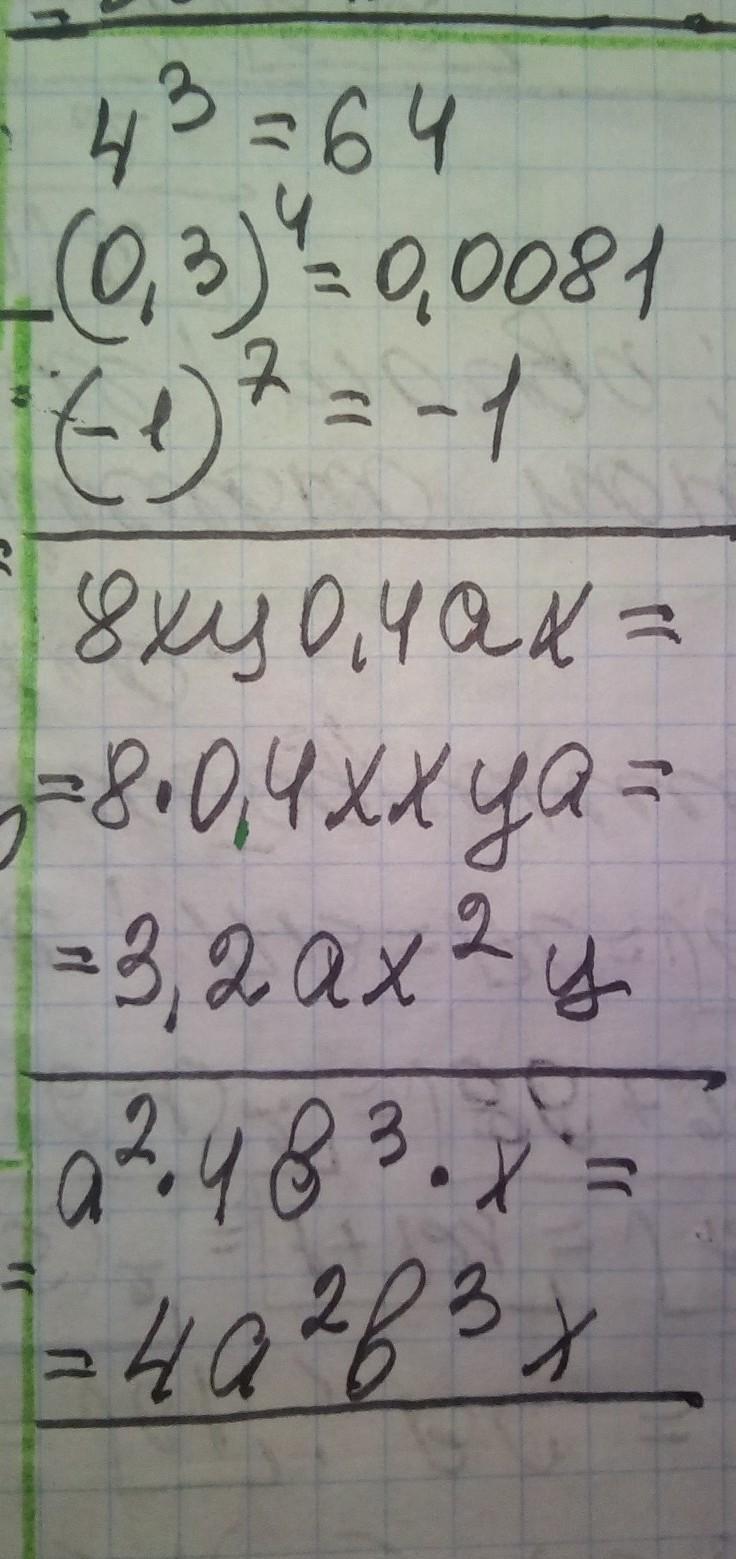 4³ = 64
(0,3)⁴ = 0,0081
(-1)⁷ = -1
8xy0,4ax =
= 8·0,4xxya =
= 3,2ax²y
a²·4b³·x =
= 4a²b³x